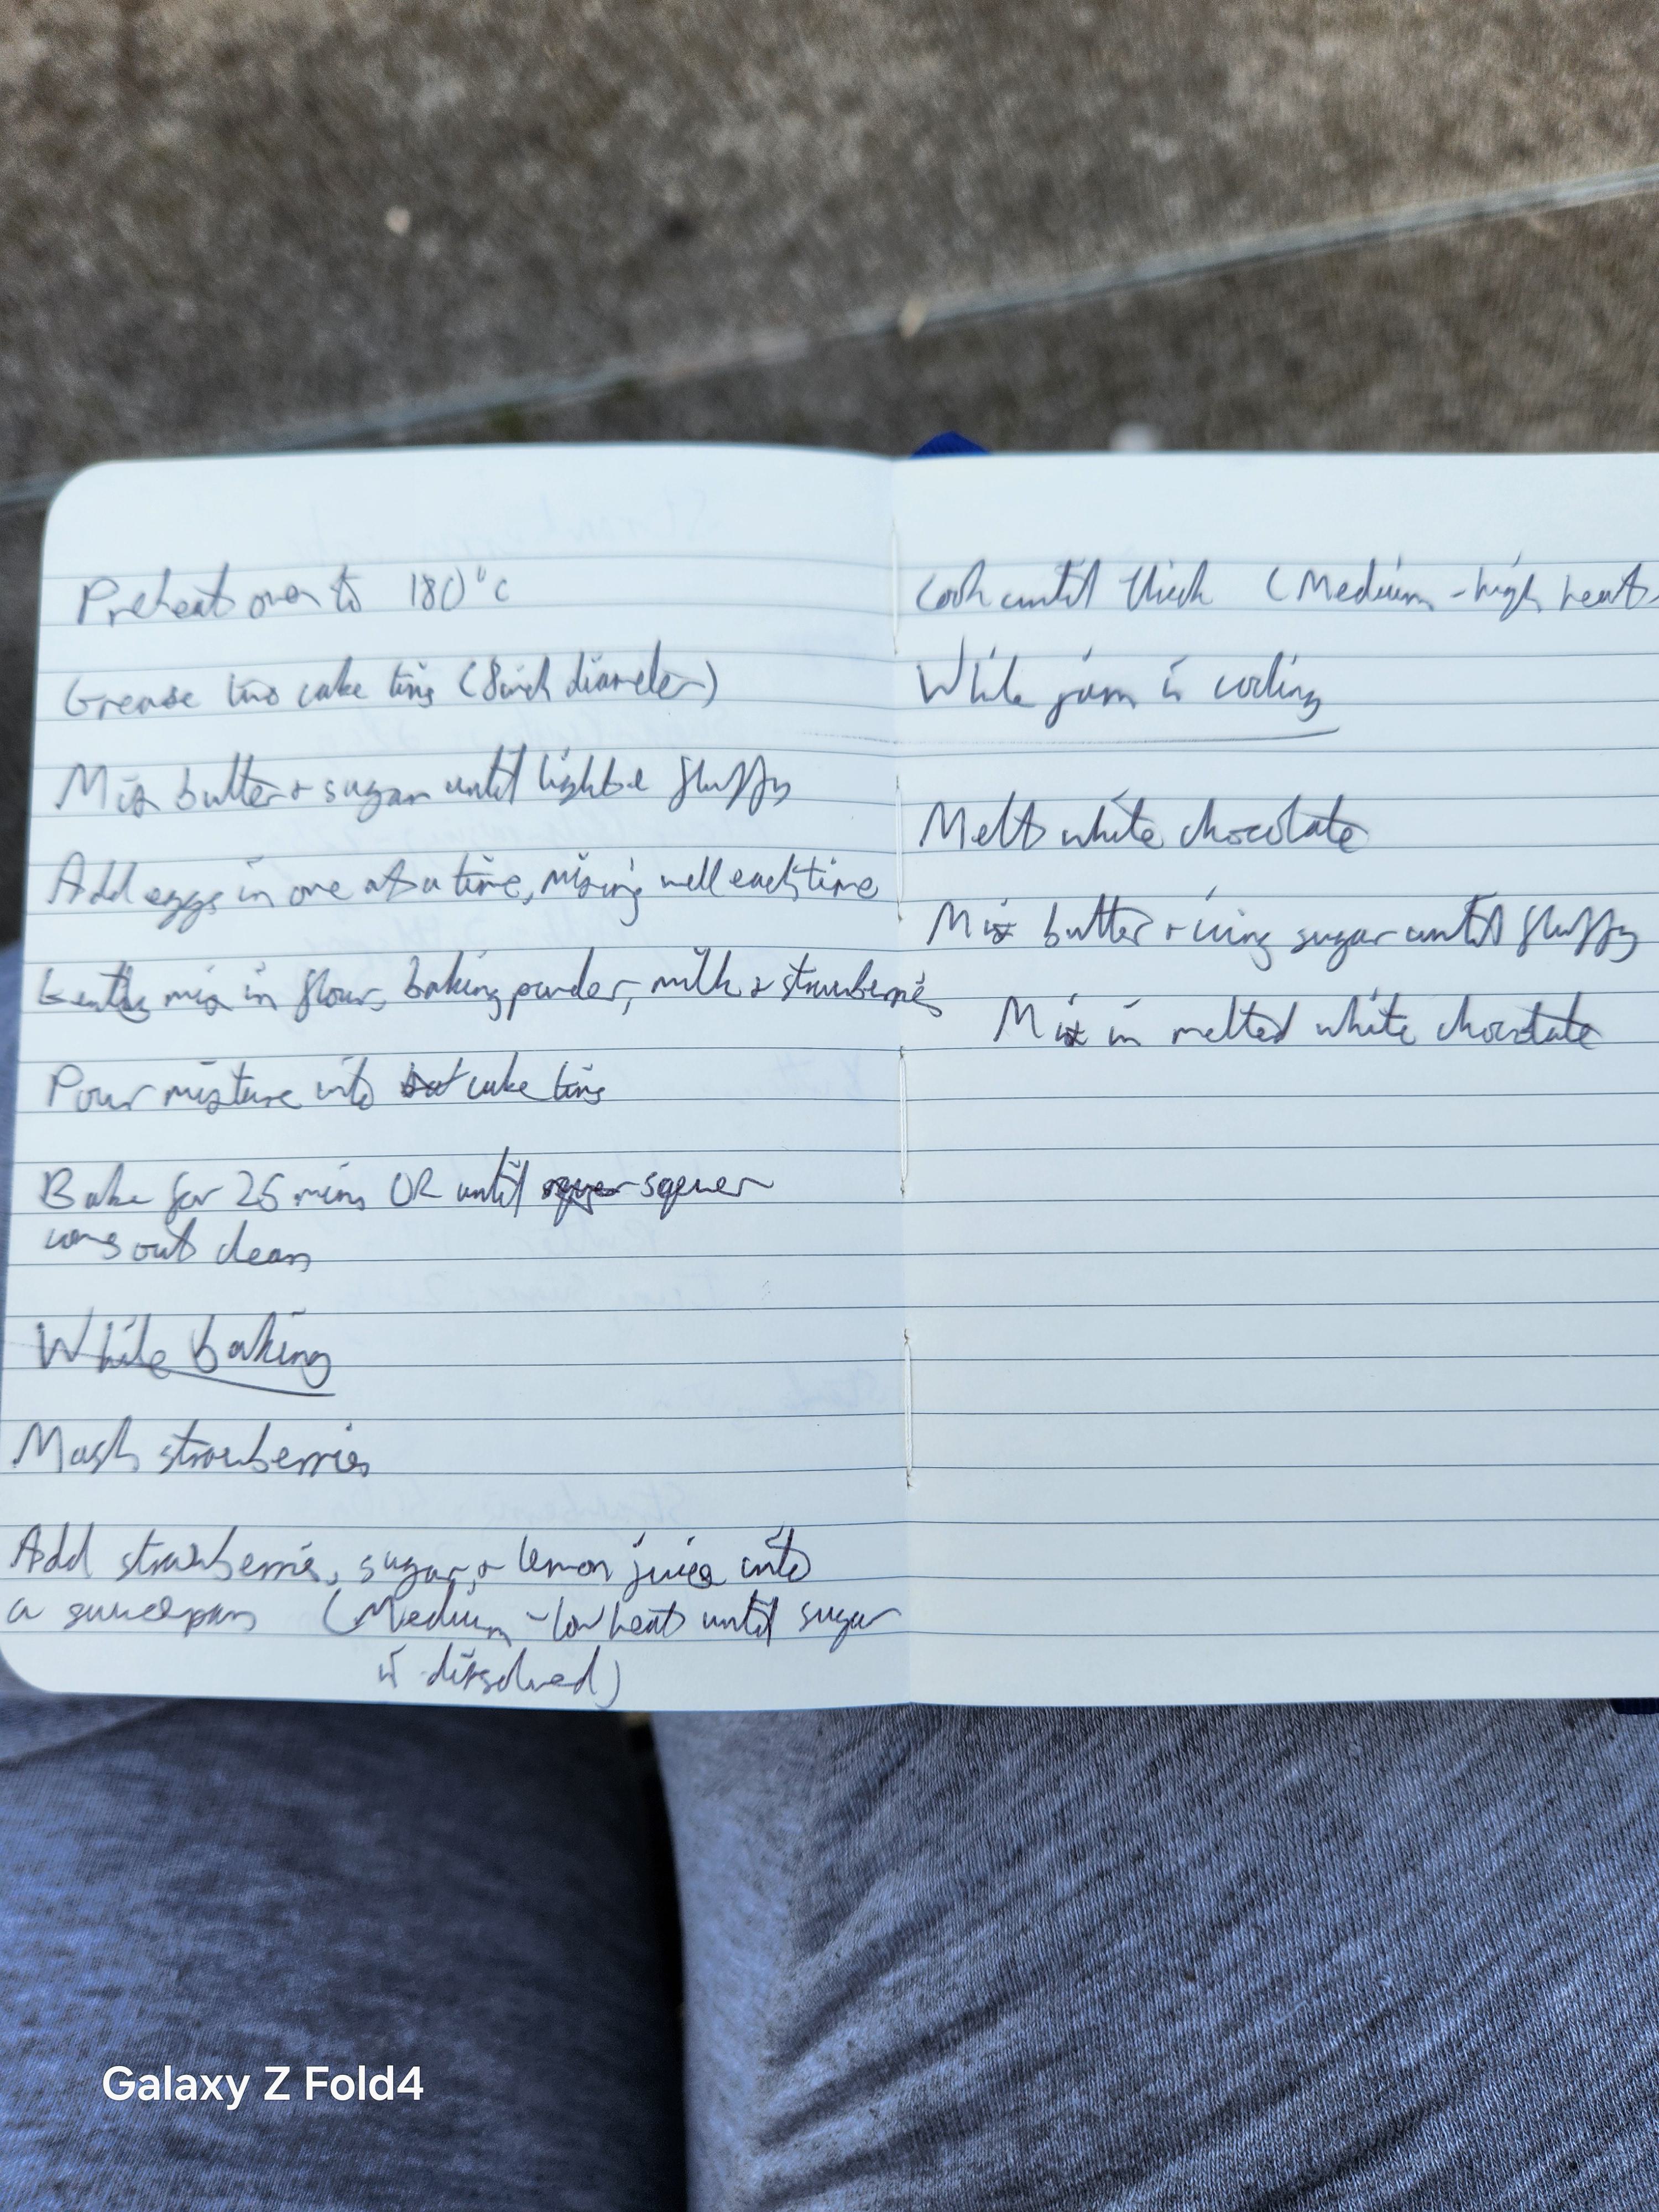 Preheat oven to 180°c
Grease two cake tins (8inch diameter)
Mix butter + sugar until light & fluffy
Add eggs in one at a time, mixing well each time
Gently mix in flour, baking powder, milk & strawberries
Pour mixture into cake tins
Bake for 25 mins OR until sqewer
comes out clean
While baking
Mash strawberries
Add strawberries, sugar, + lemon juice into
a saucepan (Medium - low heat until sugar
is dissolved)
Cook until thick (Medium - high heat
While jam is cooling
Melt white chocolate
Mix butter + icing sugar until fluffy
Mix in melted white chocolate
Galaxy Z Fold4